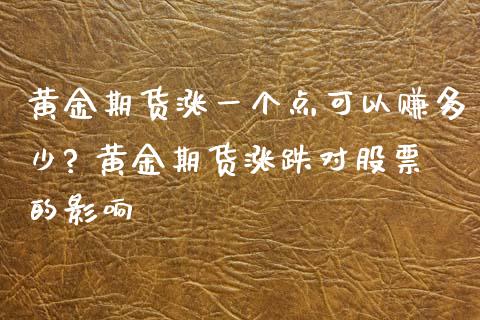 黄金期货涨一个点可以赚多
少? 黄金期货涨跌对股票
的影响